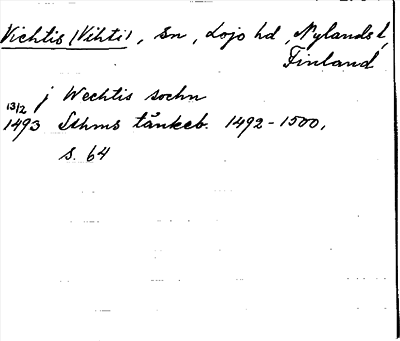 Vichtis (Vihti), Sn, Lojo hd, Nylands l,
Finland
j Wechtis sochn
13/2
1493 Sthms tänkeb. 1492-1500,
s. 64